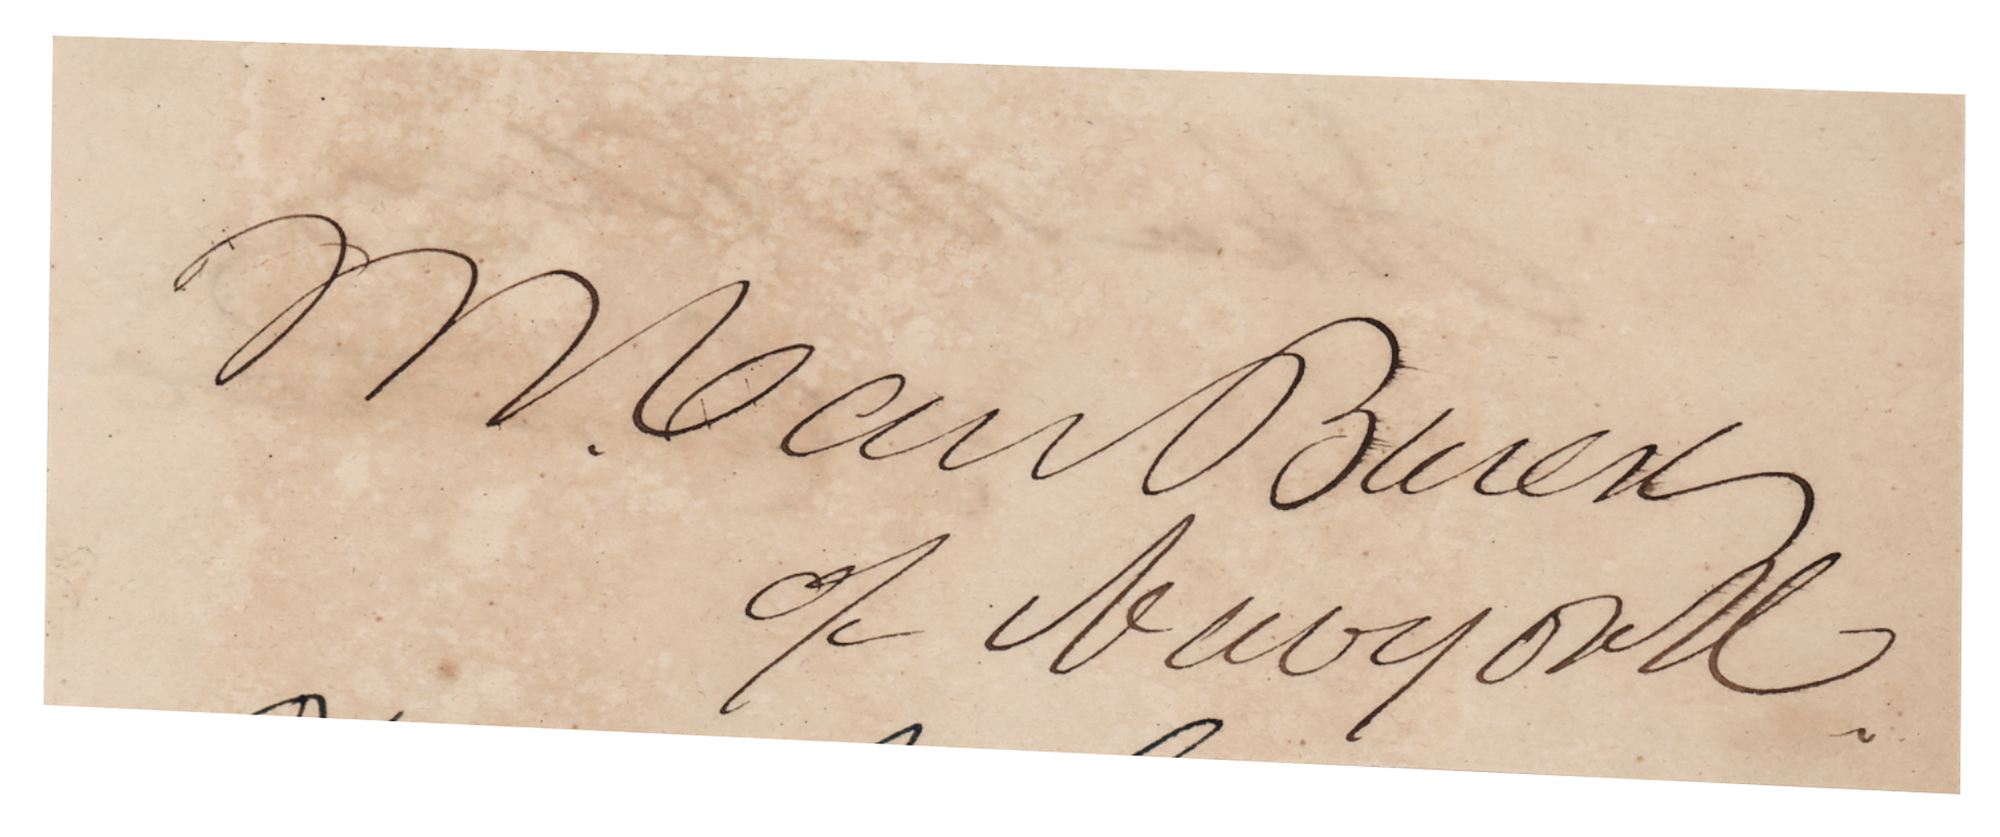 M. Van Buren
of New York